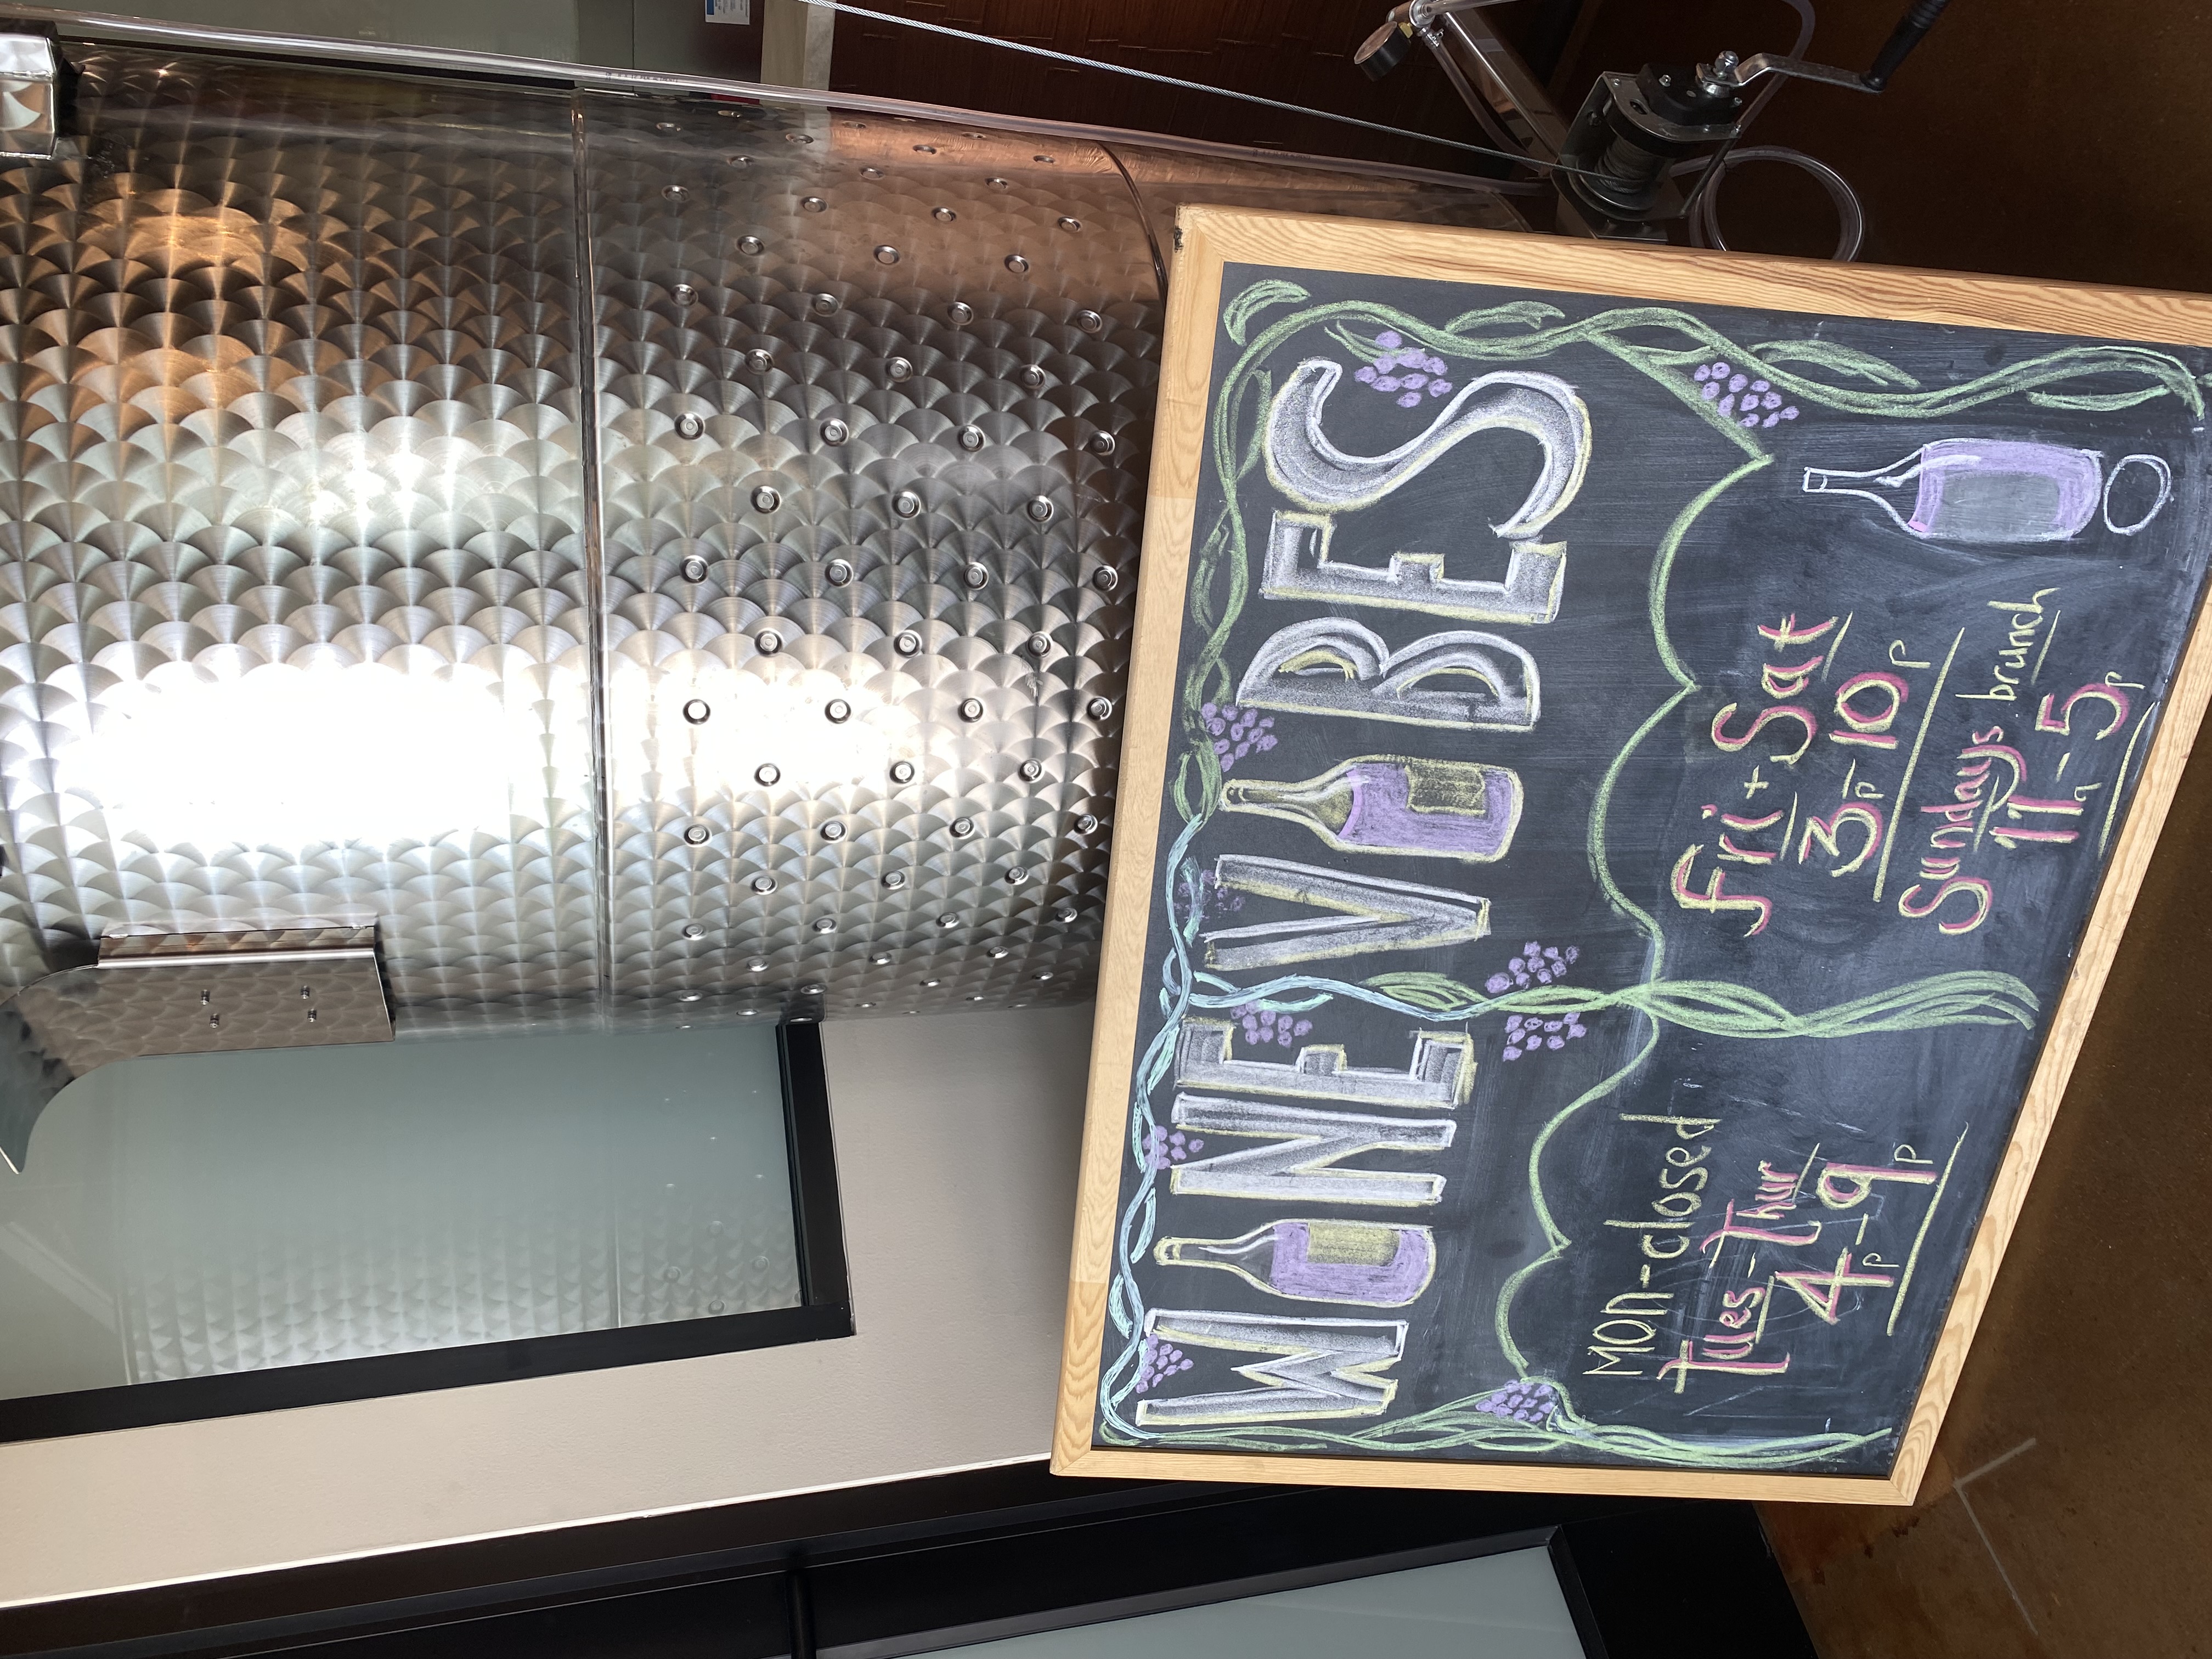 WINE VIBES
Mon-closed
Tues-Thur
4p-9p
Fri+Sat
3p-10p
Sundays brunch
11a-5p